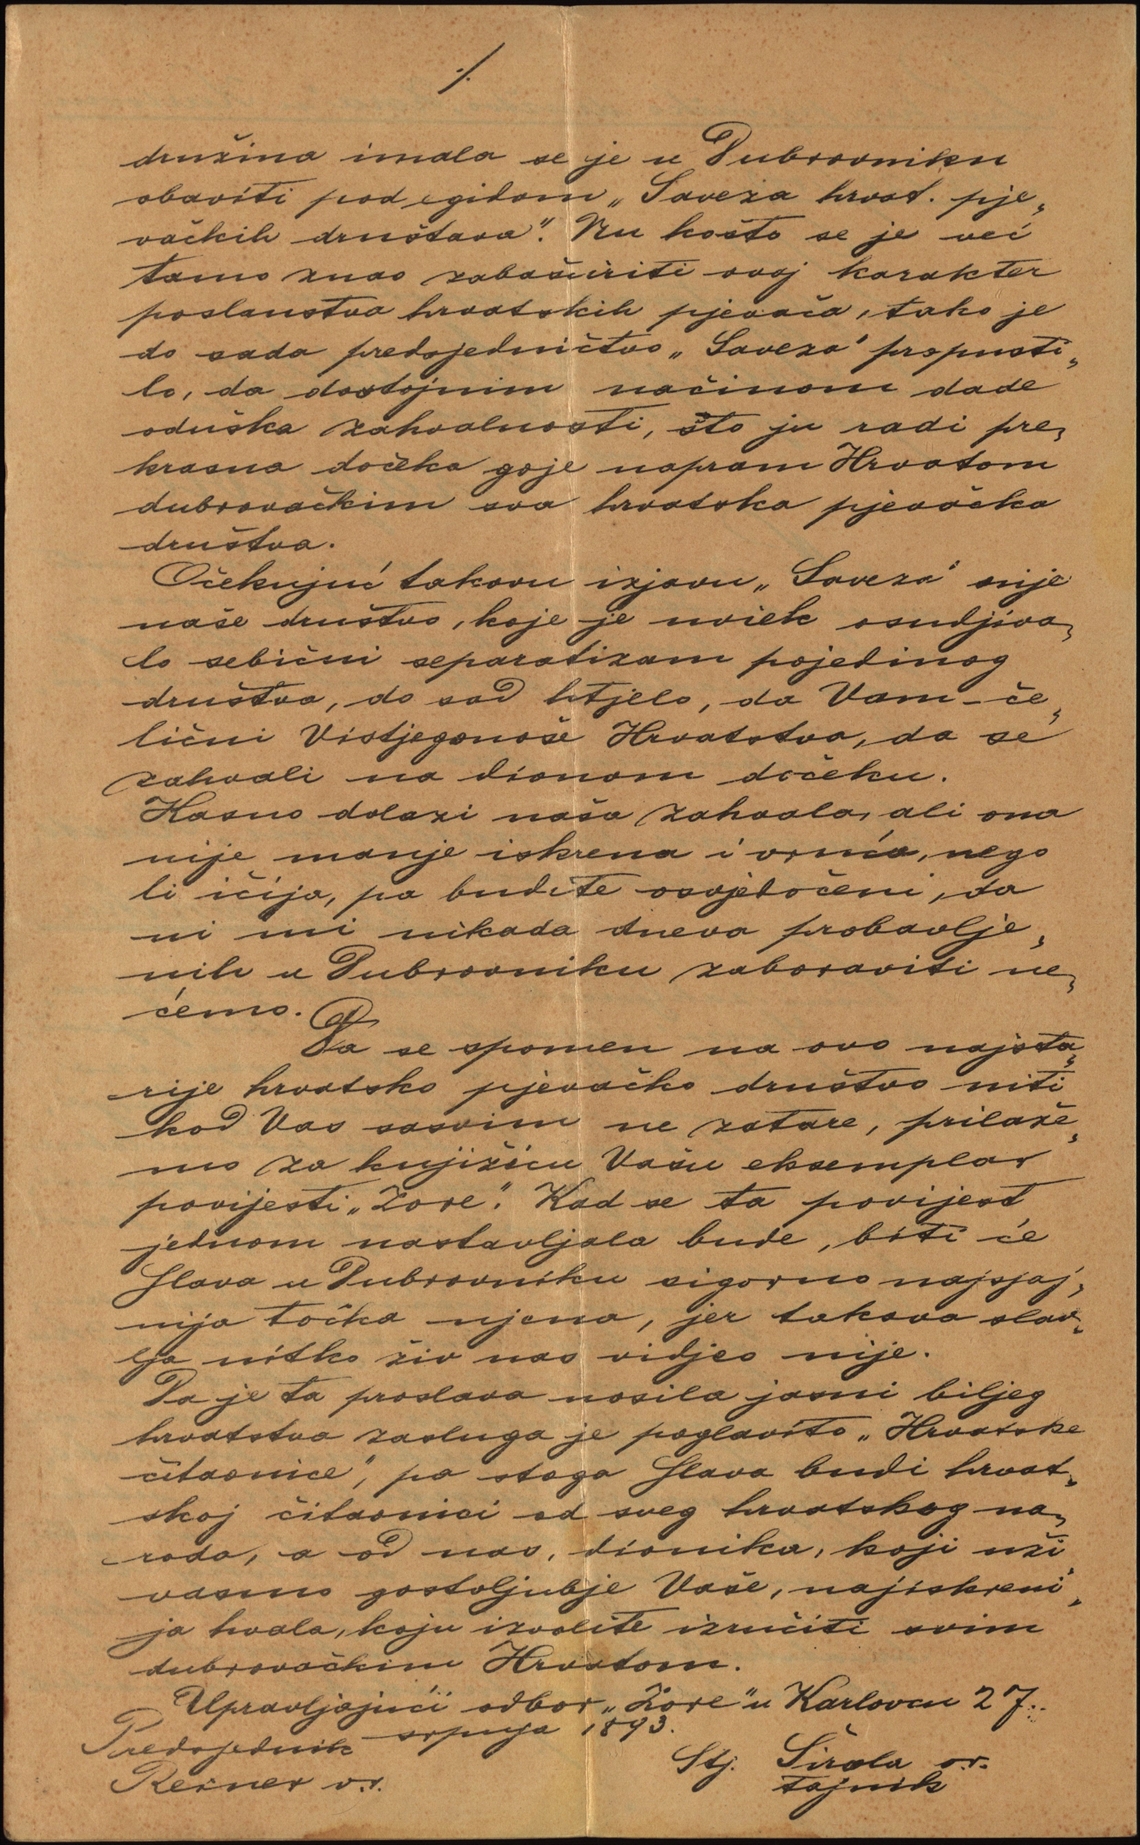 ./.
družina imala se je u Dubrovniku
obaviti pod egidom „Saveza hrvat. pje„
vačkih društava". Nu košto se je već
tamo znao zabašuriti ovaj karakter
poslanstva hrvatskih pjevača, tako je
do sada predsjedničtvo „Saveza" propusti„
lo, da dostojnim načinom dade
oduška zahvalnosti, što ju radi pre„
krasna dočeka goje napram Hrvatom
dubrovačkim sva hrvatska pjevačka
društva.
Očekujuć takovu izjavu „Saveza" nije
naše društvo, koje je uviek osudjiva„
lo sebični separatizam pojedinog
društva, do sad htjelo, da Vam - če„
lični Vistjegonoše Hrvatstva, da se
zahvali na divnom dočeku.
Kasno dolazi naša zahvala, ali ona
nije manje iskrena i vruća, nego
li ičija, pa budite osvjedočeni, da
ni mi nikada dneva probavlje„
nih u Dubrovniku zaboraviti ne„
ćemo.
Da se spomen na ovo najsta„
rije hrvatsko pjevačko društvo niti
kod Vas sasvim ne zatare, prilaže„
mo za knjižicu Vašu eksemplar
povijesti „Zore". Kad se ta povijest
jednom nastavljala bude, biti će
slava u Dubrovniku sigurno najsjaj„
nija točka njena, jer takova slav„
lja nitko živ nas vidjeo nije.
Da je ta proslava nosila jasni biljeg
hrvatstva zasluga je poglavito „Hrvatske
čitaonice", pa stoga slava budi hrvat„
skoj čitaonici od sveg hrvatskog na„
roda, a od nas, dionika, koji uži„
vasmo gostoljubje Vaše, najiskreni„
ja hvala, koju izvolite izručiti svim
dubrovačkim Hrvatom.
Upravljajući odbor „Zore" u Karlovcu 27.
srpnja 1893.
Predsjednik
Reiner v.r.
Stj. Širola v.r.
tajnik